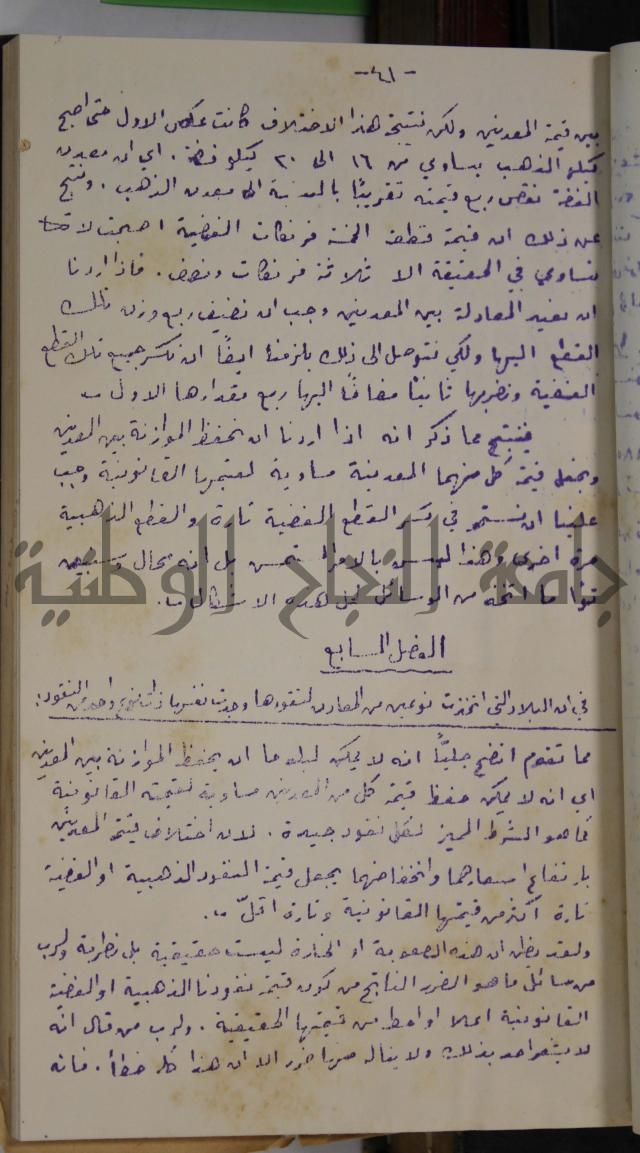 -٤١-
بين قيمة المعدنين ولكن نتيجة هذا الاختلاف كانت عكس الاول حتى اصبح
كيلو الذهب يساوي من ١٦ الى ٢٠ كيلو فضة . اي ان معدن
الفضة نقص ربع قيمته تقريبًا بالنسبة الى معدن الذهب . ونتج
عن ذلك ان قيمة قطعة الخمسة فرنكات الفضية اصبحت لا
تساوي في الحقيقة الا ثلاثة فرنكات ونصف . فاذا اردنا
ان نعيد المعادلة بين المعدنين وجب ان نضيف ربع وزن تلك
القطع اليها ولكي نتوصل الى ذلك يلزمنا ايضًا ان نكسر جميع تلك القطع
الفضية ونضربها ثانيًا مضافًا اليها ربع مقدارها الاول
فينتج مما ذكر انه اذا اردنا ان نحفظ الموازنة بين المعدنين
ونجعل قيمة كل منهما المعدنية مساوية لقيمتها القانونية وجب
علينا ان نستمر في كسر القطع الفضية تارة والقطع الذهبية
مرة اخرى وهذا ليس بالامر المستحسن بل انه محال وسنبين
ما اتخذ من الوسائل لحل هذه الاشكال
الفصل السابع
في ان البلاد التي اتخذت نوعين من المعادن لنقودها وجدت نفسها ذات نوع واحد من النقود:
مما تقدم اتضح جليًّا انه لا يمكن لبلد ما ان يحفظ الموازنة بين المعدنين
اي انه لا يمكن حفظ قيمة كل من المعدنين مساوية لقيمته القانونية
كما هو الشرط المميز لكل نقود جيدة . لان اختلاف قيمة المعدنين
بارتفاع اسعارهما وانخفاضهما يجعل قيمة النقود الذهبية او الفضية
تارة اكثر من قيمتها القانونية وتارة اقلّ
ولقد يظن ان هذه الصعوبة او الخسارة ليست حقيقية بل نظرية ولرب
من سائل ما هو الضرر الناتج من كون قيمة نقودنا الذهبية او الفضية
القانونية اعلا او احط من قيمتها الحقيقية . ولرب من قال انه
لا يشعر احد بذلك ولا يناله منها ضرر الا ان هذا كله خطأ . فانه
جامعة النجاح الوطنية